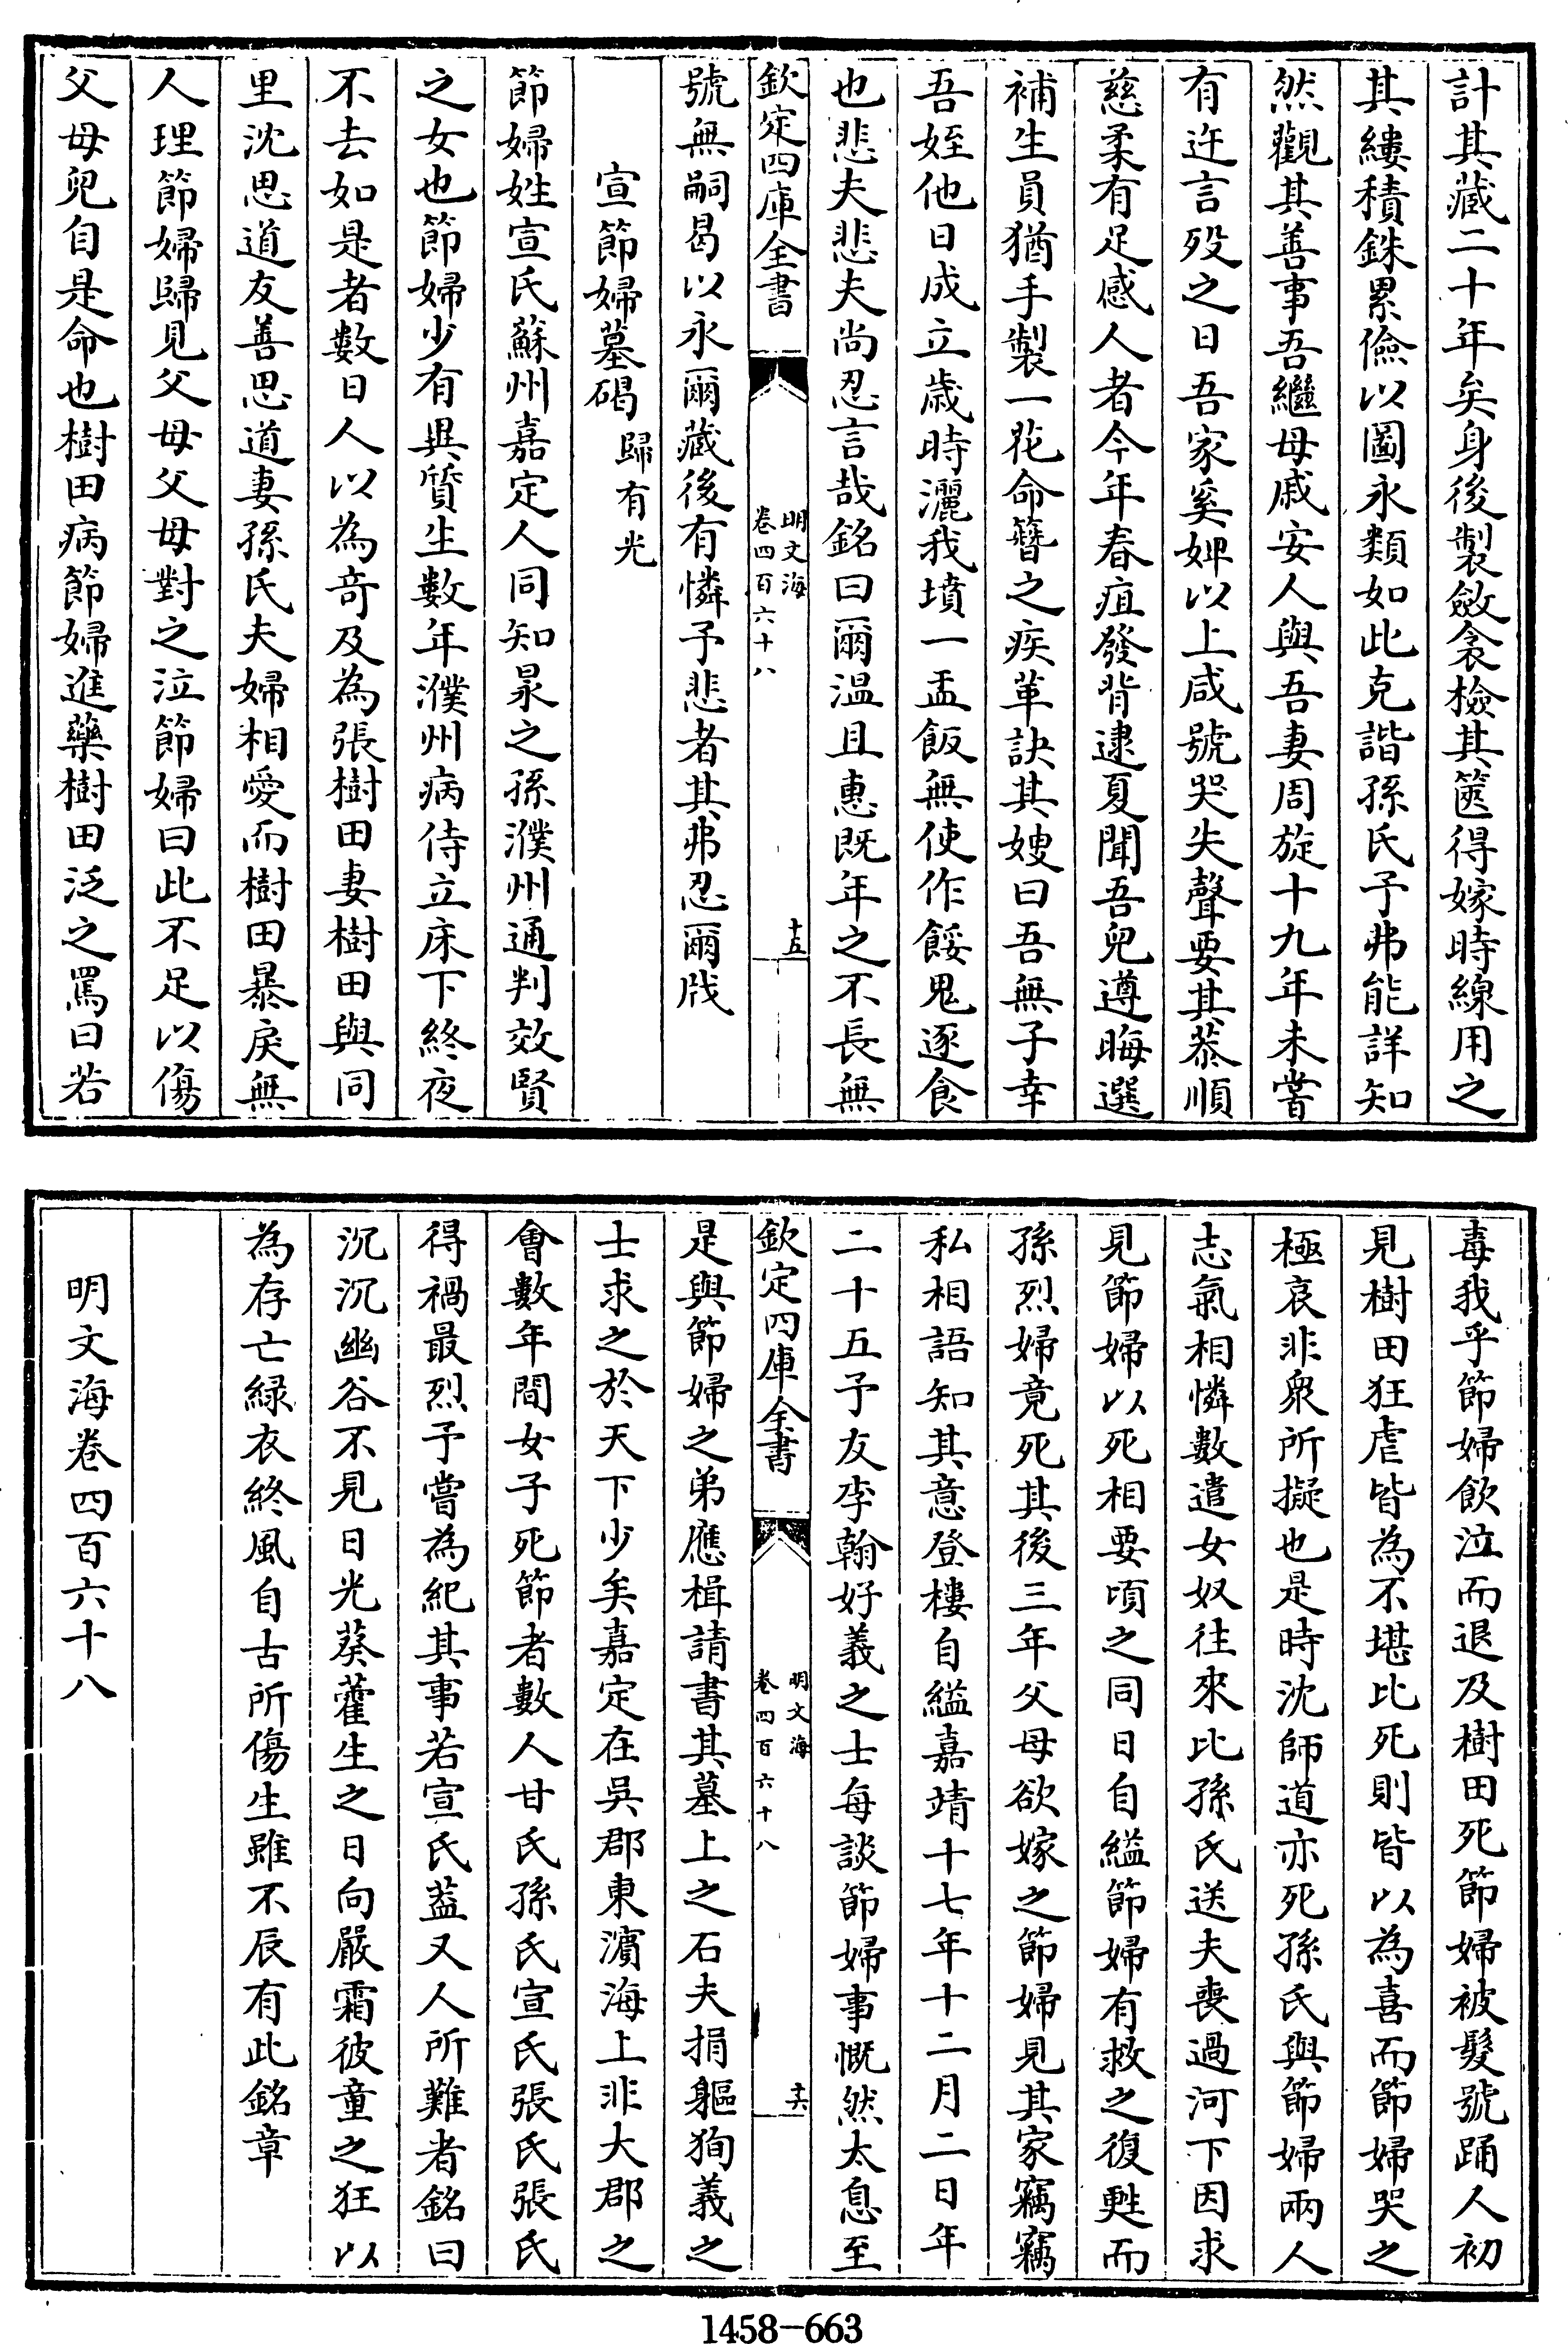 計其藏二十年矣身後製斂衾檢其篋得嫁時線用之
其縷積銖累儉以圖永類如此克諧孫氏予弗能詳知
然觀其善事吾繼母戚安人與吾妻周旋十九年未嘗
有迕言歿之日吾家奚婢以上咸號哭失聲要其恭順
慈柔有足感人者今年春疽發背逮夏聞吾兒遵晦選
補生員猶手製一花命簪之疾革訣其嫂曰吾無子幸
吾姪他日成立歲時灑我墳一盂飯無使作餒鬼逐食
也悲夫悲夫尚忍言哉銘曰爾溫且惠既年之不長無
欽定四庫全書
明文海
卷四百六十八
十五
號無嗣曷以永爾藏後有憐予悲者其弗忍爾戕
宣節婦墓碣 歸有光
節婦姓宣氏蘇州嘉定人同知杲之孫濮州通判效賢
之女也節婦少有異質生數年濮州病侍立床下終夜
不去如是者數日人以為奇及為張樹田妻樹田與同
里沈思道友善思道妻孫氏夫婦相愛而樹田暴戾無
人理節婦歸見父母父母對之泣節婦曰此不足以傷
父母兒自是命也樹田病節婦進藥樹田泛之罵曰若
毒我乎節婦飲泣而退及樹田死節婦被髮號踊人初
見樹田狂虐皆為不堪比死則皆以為喜而節婦哭之
極哀非衆所擬也是時沈師道亦死孫氏與節婦兩人
志氣相憐數遣女奴往來比孫氏送夫喪過河下因求
見節婦以死相要頃之同日自縊節婦有救之復甦而
孫烈婦竟死其後三年父母欲嫁之節婦見其家竊竊
私相語知其意登樓自縊嘉靖十七年十二月二日年
二十五予友李翰好義之士每談節婦事慨然太息至
欽定四庫全書
明文海
卷四百六十八
十六
是與節婦之弟應楫請書其墓上之石夫捐軀狥義之
士求之於天下少矣嘉定在吳郡東濵海上非大郡之
會數年間女子死節者數人甘氏孫氏宣氏張氏張氏
得禍最烈予嘗為紀其事若宣氏葢又人所難者銘曰
沉沉幽谷不見日光葵藿生之日向嚴霜彼童之狂以
為存亡緑衣終風自古所傷生雖不辰有此銘章
明文海卷四百六十八
1458-663